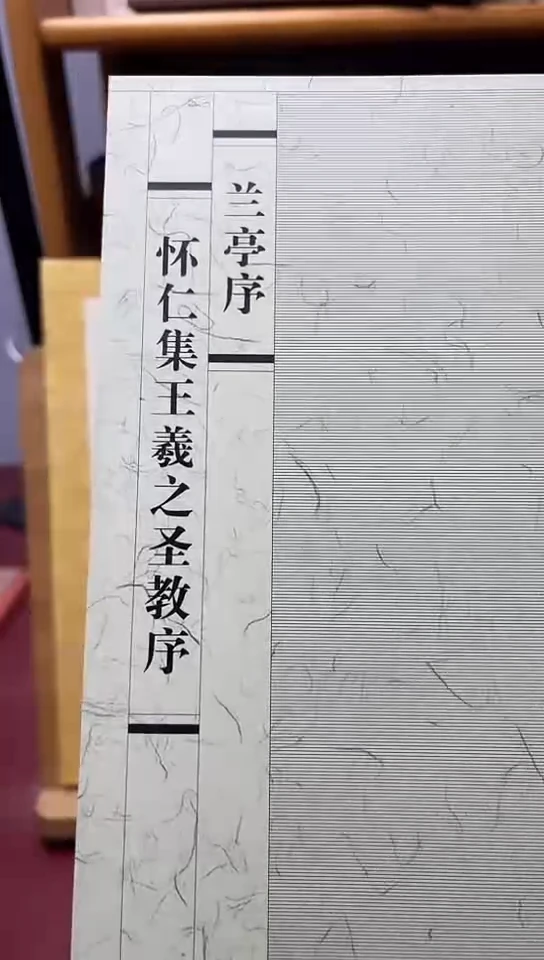 兰亭序
怀仁集王羲之圣教序